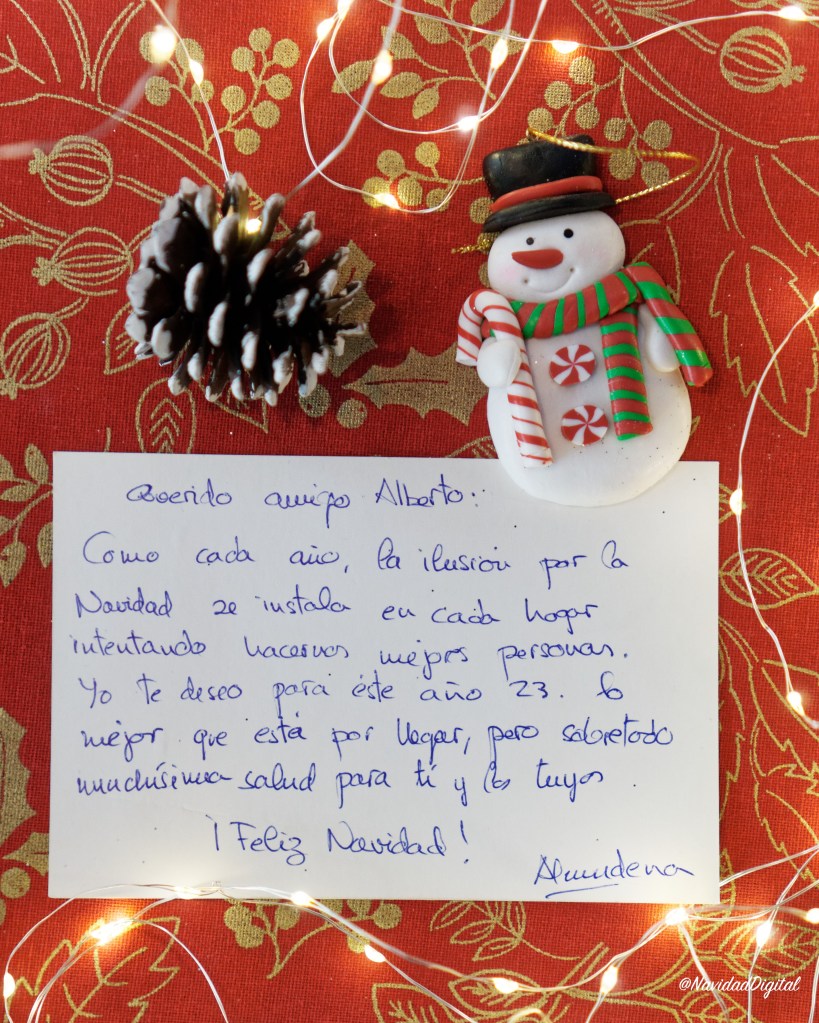 Querido amigo Alberto:
Como cada año, la ilusión por la
Navidad se instala en cada hogar
intentando hacernos mejores personas.
Yo te deseo para éste año 23. lo
mejor que está por llegar, pero sobretodo
muchísima salud para tí y los tuyos.
¡Feliz Navidad!
Almudena
@NavidadDigital